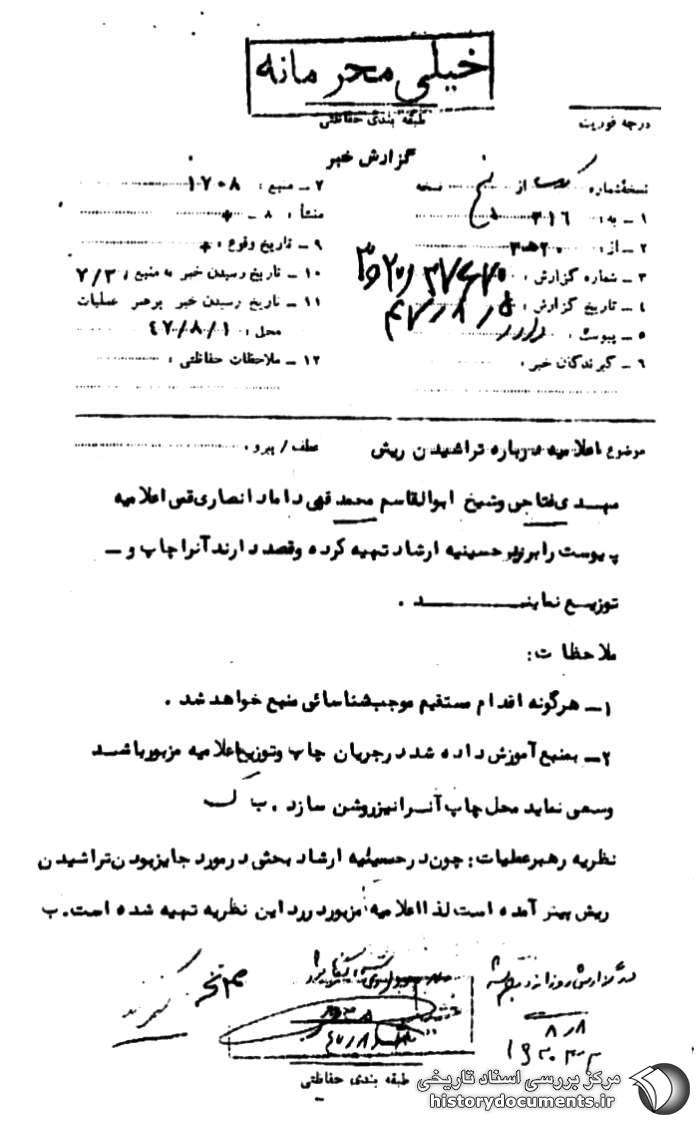 خیلی محرمانه
طبقه بندی حفاظتی
درجه فوریت
گزارش خبر
نسخه شماره یک از پنج نسخه
۱ ـ به: ۳۱۶
۲ ـ از: ۲۰ه۳۰
۳ ـ شماره گزارش:
۴ ـ تاریخ گزارش: ۴۷/۸/۵
۵ ـ پیوست: دارد
۶ ـ گیرندگان خبر:
۷ ـ منبع: ۱۷۰۸
۸ ـ منشأ:
۹ ـ تاریخ وقوع:
۱۰ ـ تاریخ رسیدن خبر به منبع: ۷/۳۰
۱۱ ـ تاریخ رسیدن خبر برهبر عملیات
محل: ۴۷/۸/۱
۱۲ ـ ملاحظات حفاظتی:
موضوع اعلامیه درباره تراشیدن ریش
عطف / پیرو:
مهدی فتاحی وشیخ ابوالقاسم محمد قمی داماد انصاری قمی اعلامیه
پیوست را برزد حسینیه ارشاد تهیه کرده وقصد دارند آنرا چاپ و ـ
توزیع نمایند .
ملاحظات:
۱ـ هرگونه اقدام مستقیم موجب شناسائی منبع خواهد شد .
۲ـ بمنبع آموزش داده شد درجریان چاپ وتوزیع اعلامیه مزبور باشد
وسعی نماید محل چاپ آنرا نیز روشن سازد . ب ک
نظریه رهبر عملیات: چون در حسینیه ارشاد بحثی در مورد جایز بودن تراشیدن
ریش بمیان آمده است لذا اعلامیه مزبور در رد این نظریه تهیه شده است . ب
در گزارش روزانه درج شد
۸/۸
طبقه بندی حفاظتی
مرکز بررسی اسناد تاریخی
historydocuments.ir